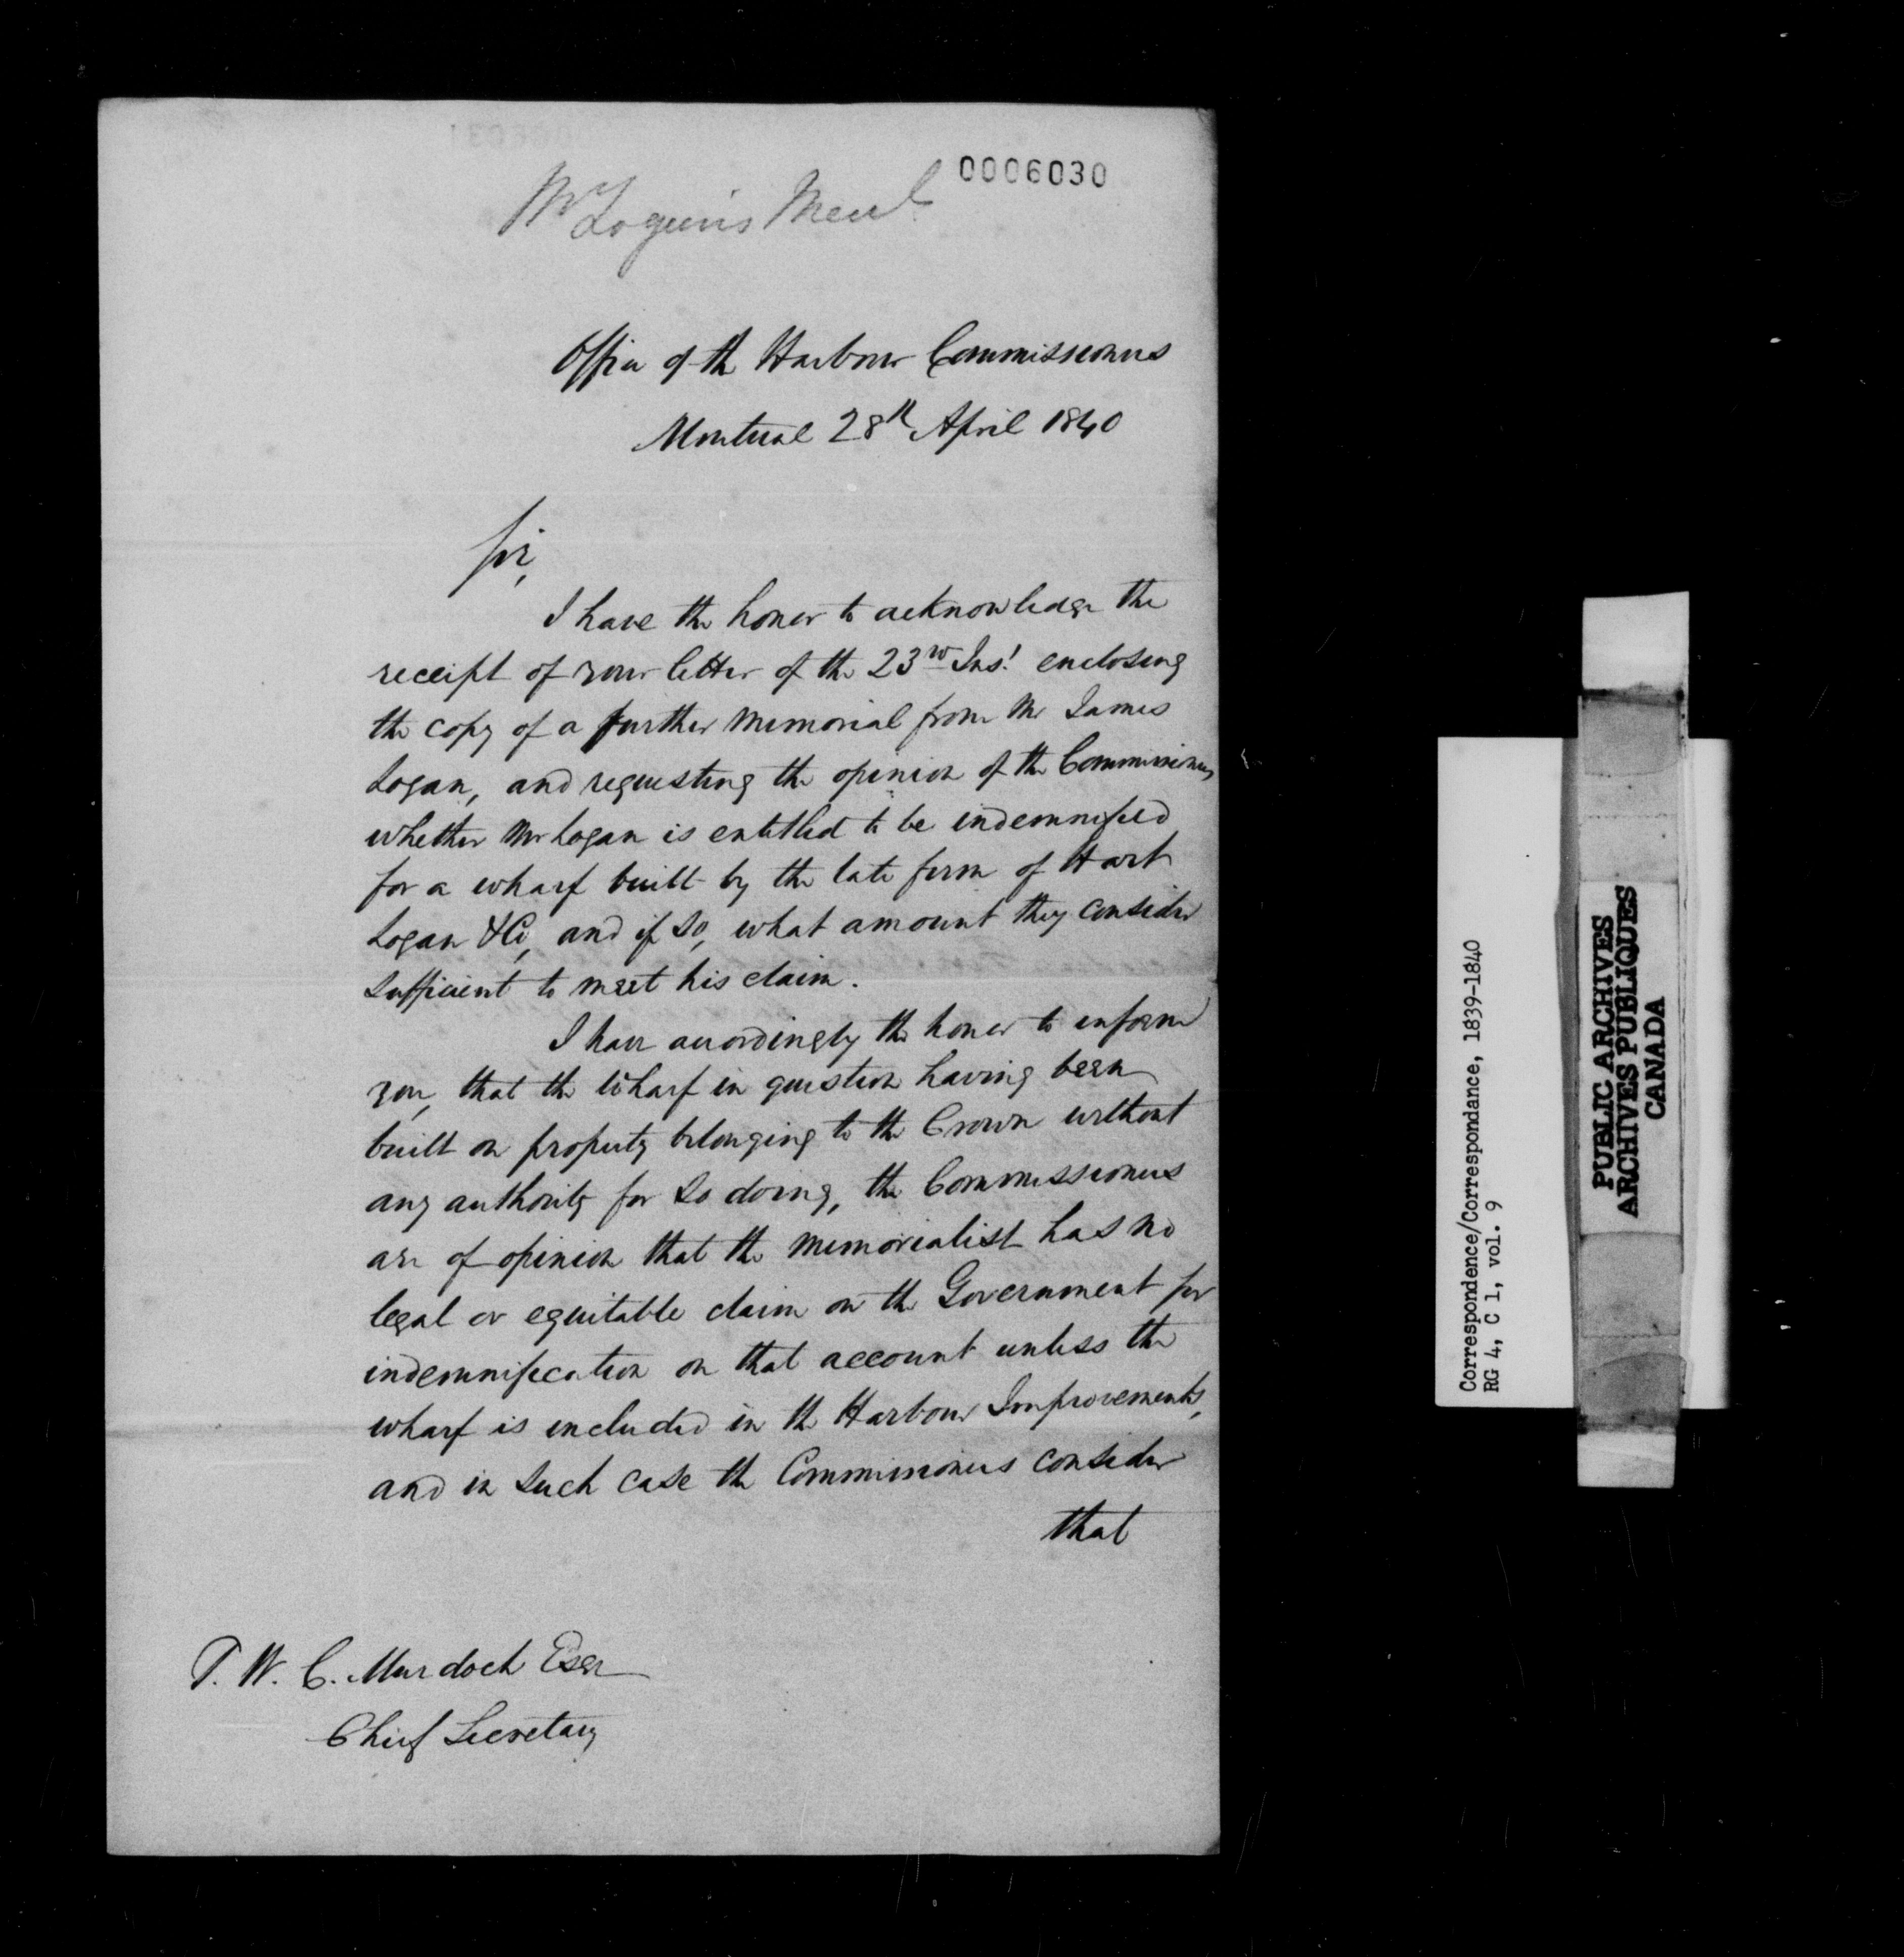 0006030
Mr Logan's Meml
Office of the Harbour Commissioners
Montreal 28th April 1840
Sir,
I have the honor to acknowledge the
receipt of your letter of the 23rd Inst enclosing
the copy of a further Memorial from Mr James
Logan, and requesting the opinion of the Commissioners
whether Mr Logan is entitled to be indemnified
for a wharf built by the late firm of Hart
Logan & Co, and if so, what amount they consider
sufficient to meet his claim.
I have accordingly the honor to inform
you, that the wharf in question having been
built on property belonging to the Crown without
any authority for so doing, the Commissioners
are of opinion that the Memorialist has no
legal or equitable claim on the Government for
indemnification on that account unless the
wharf is included in the Harbour Improvements,
and in such case the Commissioners consider
that
T. W. C. Murdoch Esqr
Chief Secretary
Correspondence/Correspondance, 1839-1840
RG 4, C 1, vol. 9
PUBLIC ARCHIVES
ARCHIVES PUBLIQUES
CANADA